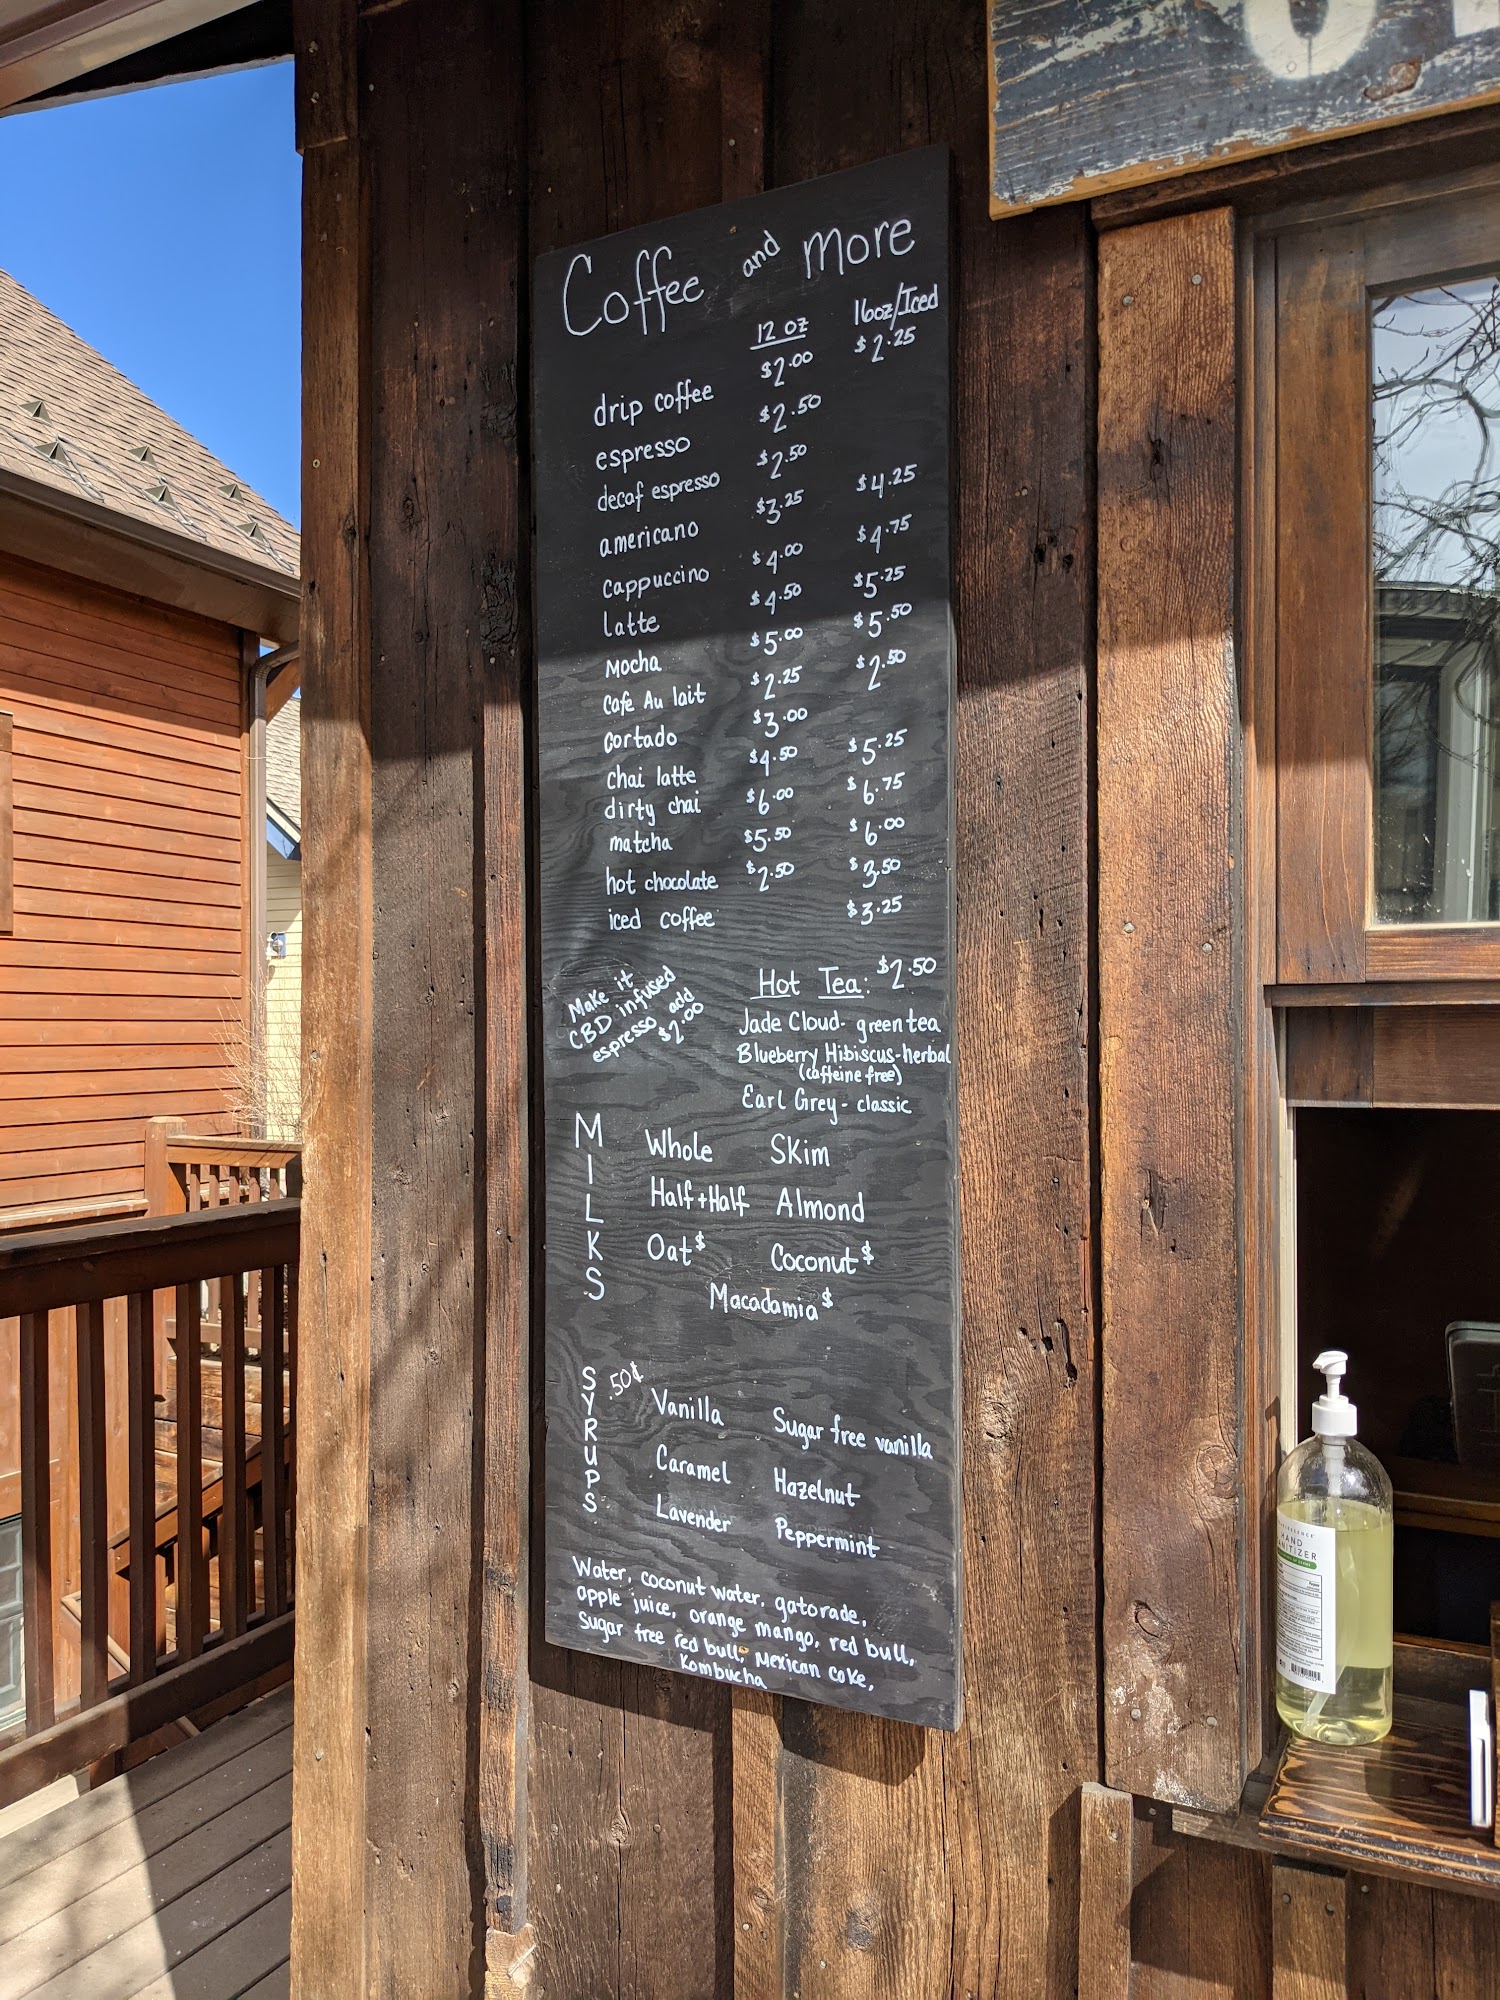 Coffee and More
12 oz 16oz/Iced
drip coffee $2.00 $2.25
espresso $2.50
decaf espresso $2.50
americano $3.25 $4.25
cappuccino $4.00 $4.75
latte $4.50 $5.25
Mocha $5.00 $5.50
Cafe Au lait $2.25 $2.50
Cortado $3.00
chai latte $4.50 $5.25
dirty chai $6.00 $6.75
matcha $5.50 $6.00
hot chocolate $2.50 $3.50
iced coffee $3.25
Make it
CBD infused
espresso add
$2.00
Hot Tea: $2.50
Jade Cloud- green tea
Blueberry Hibiscus-herbal
(caffeine free)
Earl Grey- classic
MILKS
Whole Skim
Half+Half Almond
Oat$ Coconut$
Macadamia$
SYRUPS .50¢
Vanilla Sugar free vanilla
Caramel Hazelnut
Lavender Peppermint
Water, coconut water, gatorade,
apple juice, orange mango, red bull,
Sugar free red bull, Mexican Coke,
Kombucha
HAND